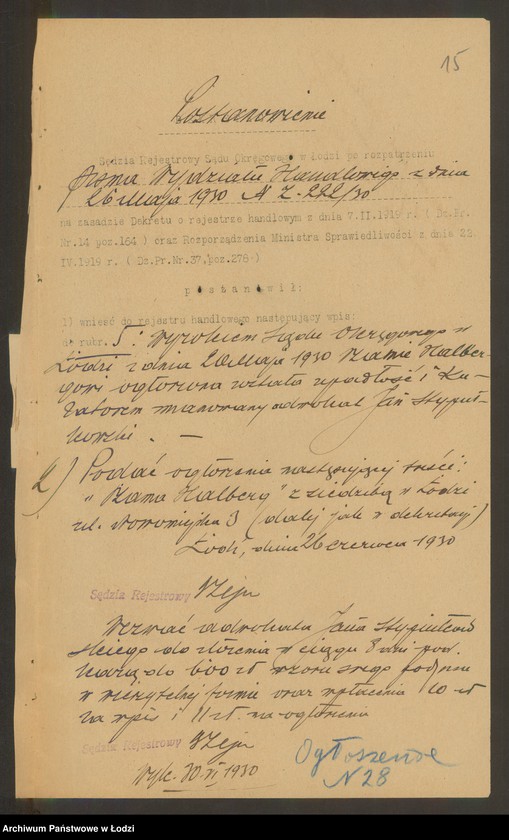 15
Postanowienie
Sędzia Rejestrowy Sądu Okręgowego w Łodzi po rozpatrzeniu
pisma Wydziału Handlowego z dnia
26 maja 1930 N Z. 292/30
na zasadzie Dekretu o rejestrze handlowym z dnia 7.II.1919 r ( Dz.Pr.
Nr.14 poz.164 ) oraz Rozporządzenia Ministra Sprawiedliwości z dnia 22.
IV.1919 r. ( Dz.Pr.Nr.37, poz.278 )
postanowił:
1) wnieść do rejestru handlowego następujący wpis:
w rubr. 5: Wyrokiem Sądu Okręgowego w
Łodzi z dnia maja 1930 Szamie Halber-
gowi ogłoszona została upadłość i Ku-
ratorem mianowany adwokat Jan Stypuł-
kowski. —
2) Podać ogłoszenie następującej treści:
"Szama Halberg" z siedzibą w Łodzi
ul. Nowomiejska 3 (dalej jak w )
Łódź, dnia 26 czerwca 1930
Sędzia Rejestrowy
Wezwać adwokata Jana Stypułkow
skiego do złożenia w ciągu 8 dni pod
karą do 600 zł wzoru swego podpisu
w należytej formie oraz wpłacenia 10 zł
za wpis i 11 zł. na ogłoszenie
Sędzia Rejestrowy
Wyk. 30.VI 1930
Ogłoszenie
N 28
Archiwum Państwowe w Łodzi